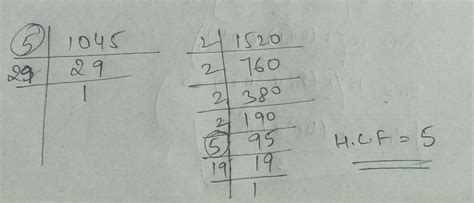 5 | 1045
29 | 29
1
2 | 1520
2 | 760
2 | 380
2 | 190
5 | 95
19 | 19
1
H.C.F = 5